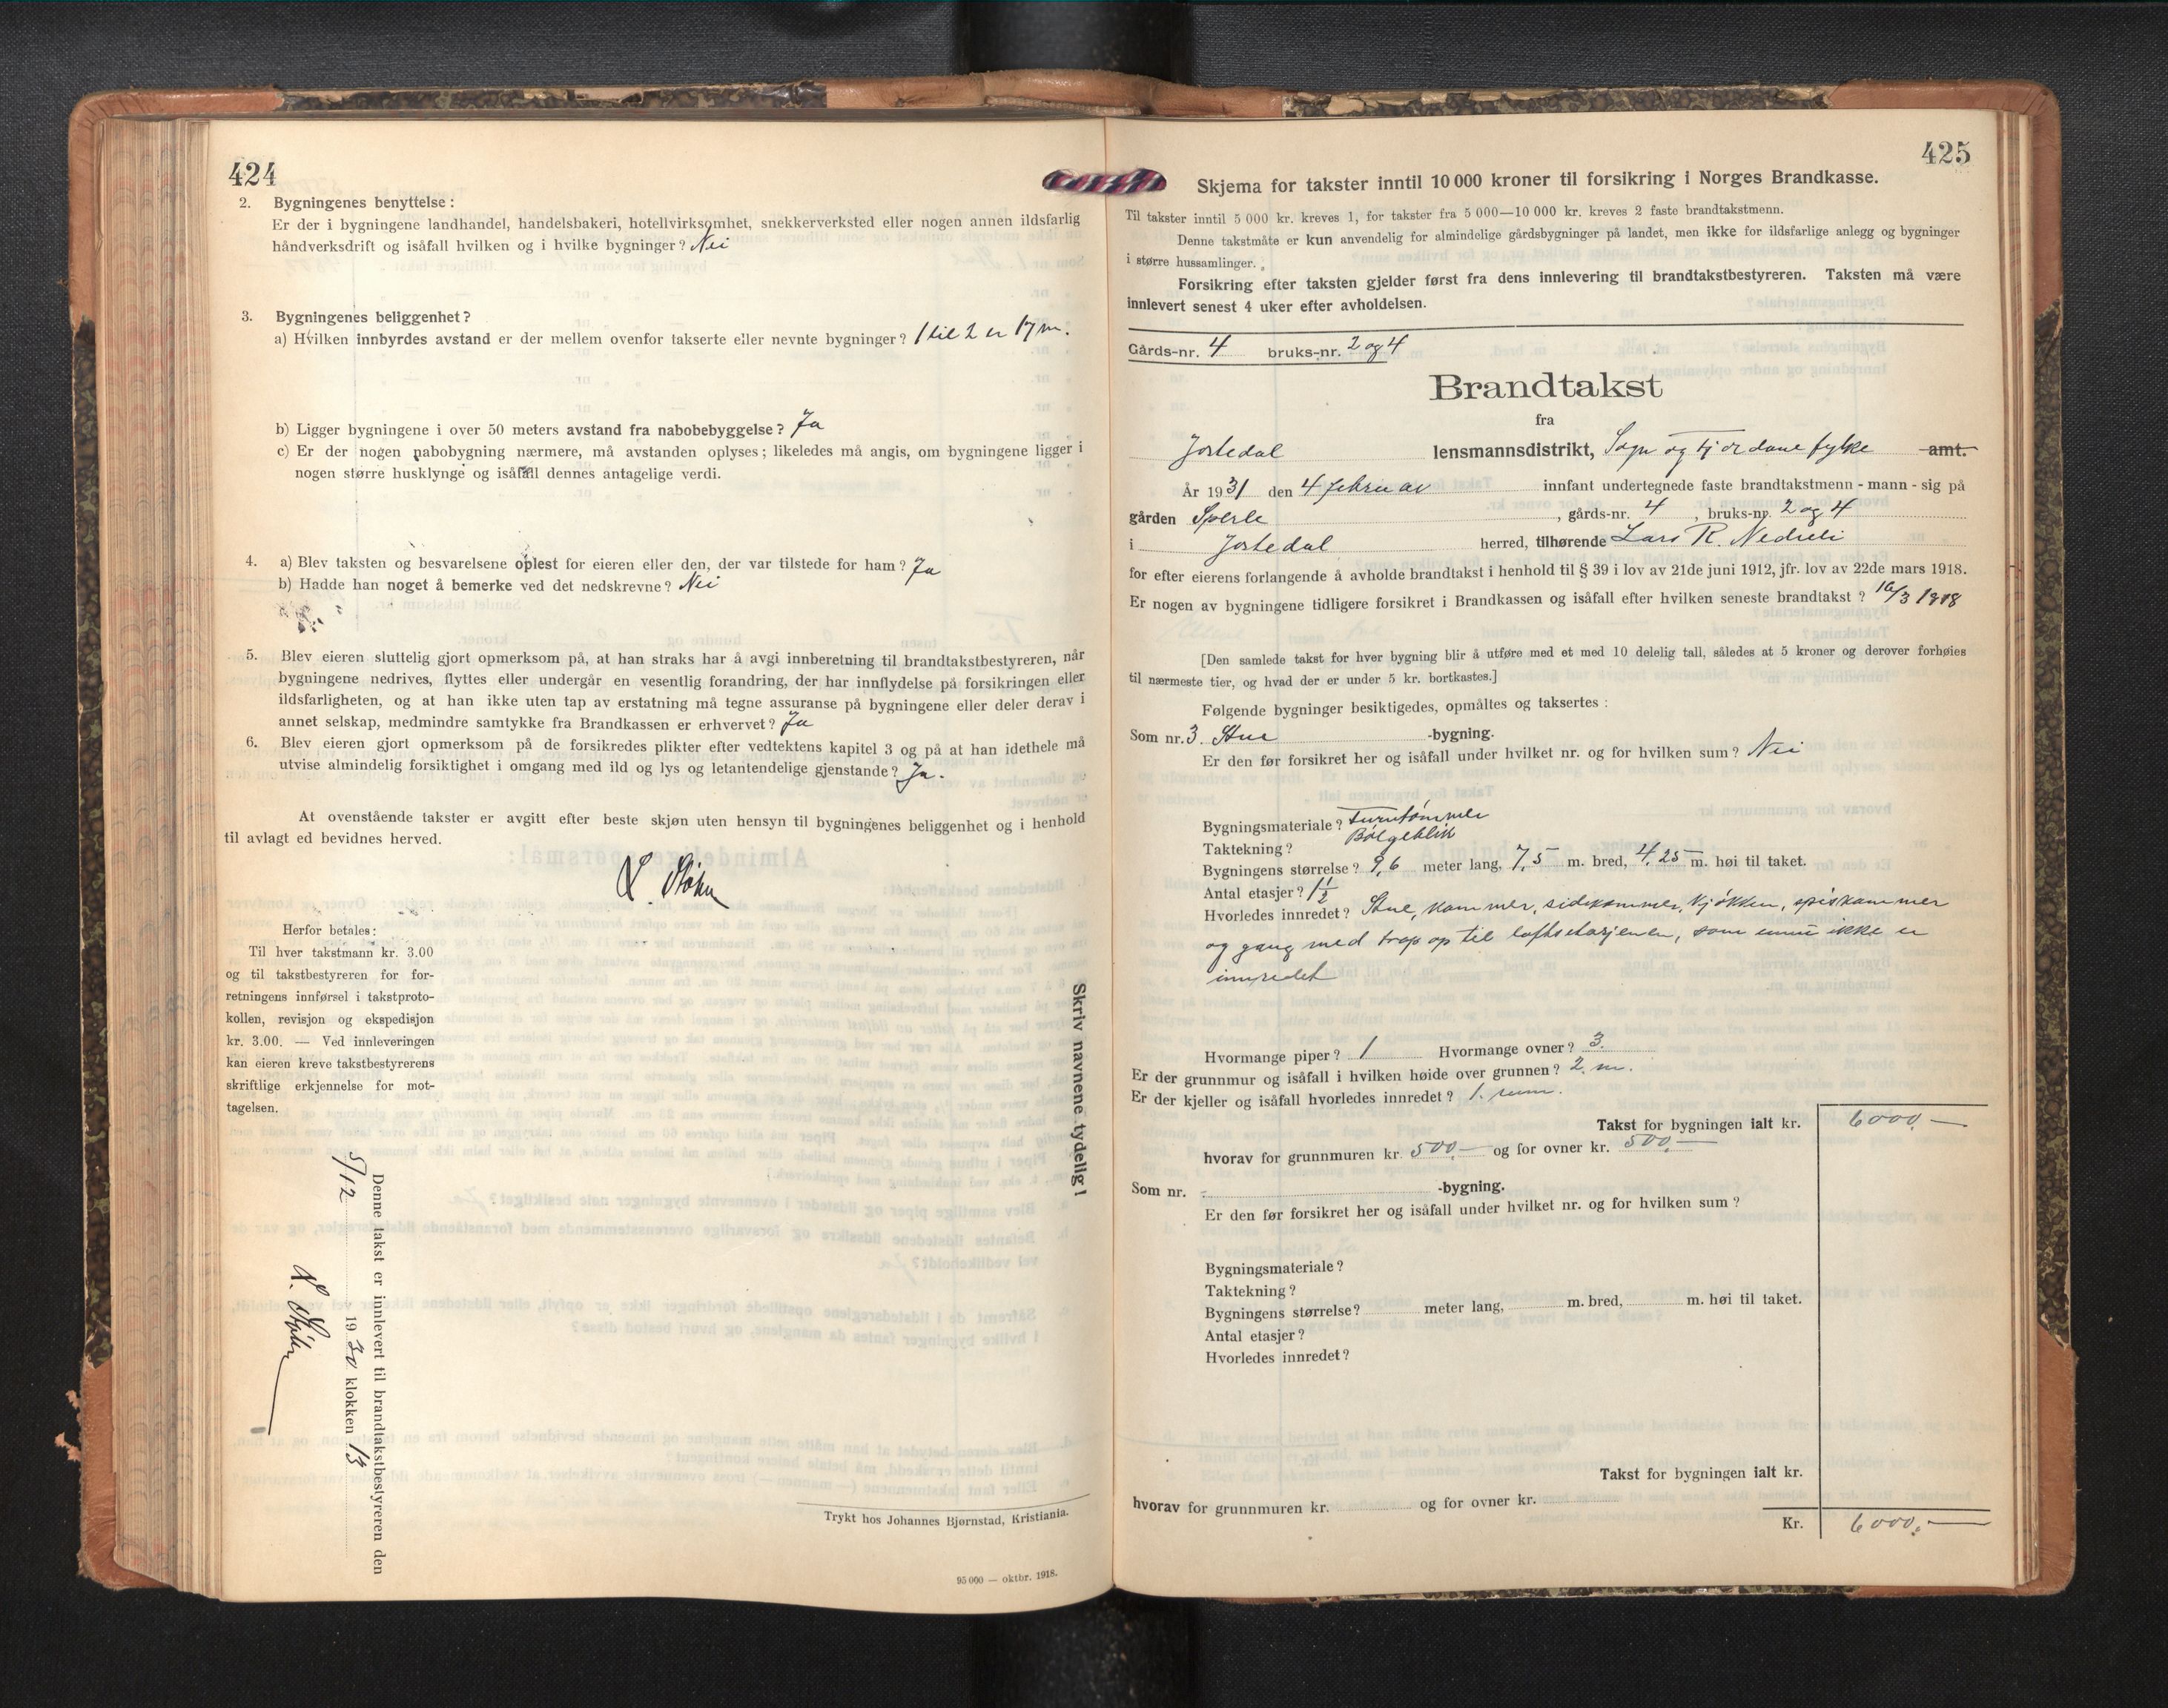 424
2. Bygningenes benyttelse :
Er der i bygningene landhandel, handelsbakeri, hotellvirksomhet, snekkerverksted eller nogen annen ildsfarlig
håndverksdrift og isåfall hvilken og i hvilke bygninger ? Nei
3. Bygningenes beliggenhet ?
a) Hvilken innbyrdes avstand er der mellem ovenfor takserte eller nevnte bygninger ? 1 til 2 er 17 m.
b) Ligger bygningene i over 50 meters avstand fra nabobebyggelse ? Ja
c) Er der nogen nabobygning nærmere, må avstanden oplyses ; likeledes må angis, om bygningene ligger i
nogen større husklynge og isåfall dennes antagelige verdi.
4. a) Blev taksten og besvarelsene oplest for eieren eller den, der var tilstede for ham ? Ja
b) Hadde han noget å bemerke ved det nedskrevne ? Nei
5. Blev eieren sluttelig gjort opmerksom på, at han straks har å avgi innberetning til brandtakstbestyreren, når
bygningene nedrives, flyttes eller undergår en vesentlig forandring, der har innflydelse på forsikringen eller
ildsfarligheten, og at han ikke uten tap av erstatning må tegne assuranse på bygningene eller deler derav i
annet selskap, medmindre samtykke fra Brandkassen er erhvervet ? Ja
6. Blev eieren gjort opmerksom på de forsikredes plikter efter vedtektens kapitel 3 og på at han idethele må
utvise almindelig forsiktighet i omgang med ild og lys og letantendelige gjenstande ? Ja.
At ovenstående takster er avgitt efter beste skjøn uten hensyn til bygningenes beliggenhet og i henhold
til avlagt ed bevidnes herved.
Herfor betales :
Til hver takstmann kr. 3.00
og til takstbestyreren for for-
retningens innførsel i takstproto-
kollen, revisjon og ekspedisjon
kr. 3.00. — Ved innleveringen
kan eieren kreve takstbestyrerens
skriftlige erkjennelse for mot-
tagelsen.
Skriv navnene tydelig !
Denne takst er innlevert til brandtakstbestyreren den
5/12 1930 klokken 13
Trykt hos Johannes Bjørnstad, Kristiania.
95 000 — oktbr. 1918.
425
Skjema for takster inntil 10 000 kroner til forsikring i Norges Brandkasse.
Til takster inntil 5 000 kr. kreves 1, for takster fra 5 000—10 000 kr. kreves 2 faste brandtakstmenn.
Denne takstmåte er kun anvendelig for almindelige gårdsbygninger på landet, men ikke for ildsfarlige anlegg og bygninger
i større hussamlinger.
Forsikring efter taksten gjelder først fra dens innlevering til brandtakstbestyreren. Taksten må være
innlevert senest 4 uker efter avholdelsen.
Gårds-nr. 4 bruks-nr. 2 og 4
Brandtakst
fra
Jostedal lensmannsdistrikt, Sogn og Fjordane fylke amt.
År 1931 den 4 februar innfant undertegnede faste brandtakstmenn - mann - sig på
gården Sperle , gårds-nr. 4 , bruks-nr. 2 og 4
i Jostedal herred, tilhørende Lars R. Nedreli
for efter eierens forlangende å avholde brandtakst i henhold til § 39 i lov av 21de juni 1912, jfr. lov av 22de mars 1918.
Er nogen av bygningene tidligere forsikret i Brandkassen og isåfall efter hvilken seneste brandtakst ?
[Den samlede takst for hver bygning blir å utføre med et med 10 delelig tall, således at 5 kroner og derover forhøies
til nærmeste tier, og hvad der er under 5 kr. bortkastes.]
Følgende bygninger besiktigedes, opmåltes og taksertes :
Som nr. 3. Stue -bygning.
Er den før forsikret her og isåfall under hvilket nr. og for hvilken sum ? Nei
Bygningsmateriale ? Furutømmer
Taktekning ? Bølgeblik
Bygningens størrelse ? 9,6 meter lang, 7,5 m. bred, 4,25 m. høi til taket.
Antal etasjer ? 1½
Hvorledes innredet ? Stue, kammer, sidekammer, kjøkken, spiskammer
og gang med trap op til loftsetasjenen, som ennu ikke er
innredet
Hvormange piper ? 1 Hvormange ovner ? 3.
Er der grunnmur og isåfall i hvilken høide over grunnen ? 2. m.
Er der kjeller og isåfall hvorledes innredet ? 1. rum.
Takst for bygningen ialt kr. 6000,—
hvorav for grunnmuren kr. 500,— og for ovner kr. 500,—
Som nr. -bygning.
Er den før forsikret her og isåfall under hvilket nr. og for hvilken sum ?
Bygningsmateriale ?
Taktekning ?
Bygningens størrelse ? meter lang, m. bred, m. høi til taket.
Antal etasjer ?
Hvorledes innredet ?
Takst for bygningen ialt kr.
hvorav for grunnmuren kr. og for ovner kr.
Kr. 6000,—